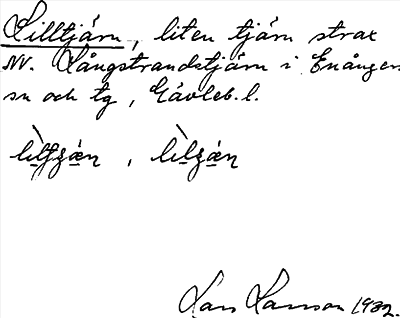 Lilltjärn, liten tjärn strax
NV. Långstrandstjärn i Enånger
sn och tg, Gävleb. l.
Lars Larsson 1932.